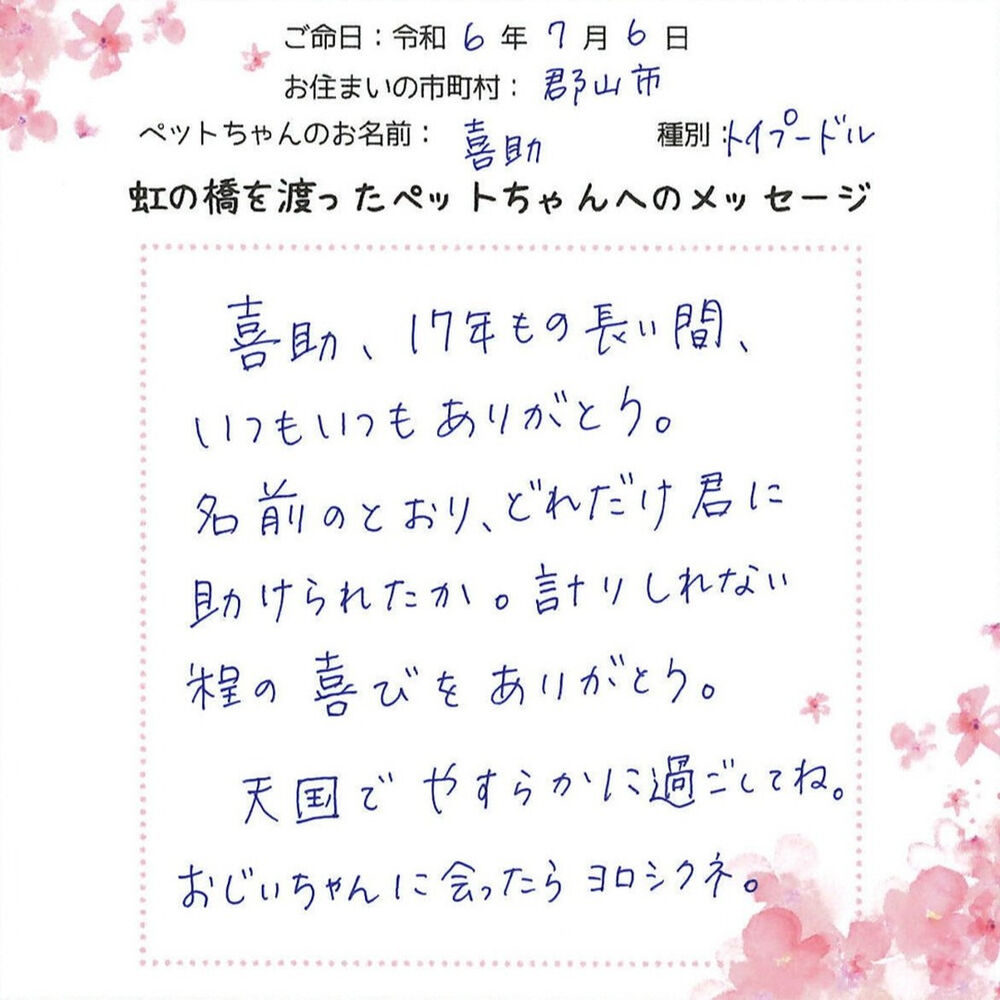 ご命日：令和 6 年 7 月 6 日
お住まいの市町村： 郡山市
ペットちゃんのお名前： 喜助 種別：トイプードル
虹の橋を渡ったペットちゃんへのメッセージ
喜助、17年もの長い間、
いつもいつもありがとう。
名前のとおり、どれだけ君に
助けられたか。計りしれない
程の喜びをありがとう。
天国でやすらかに過ごしてね。
おじいちゃんに会ったらヨロシクネ。